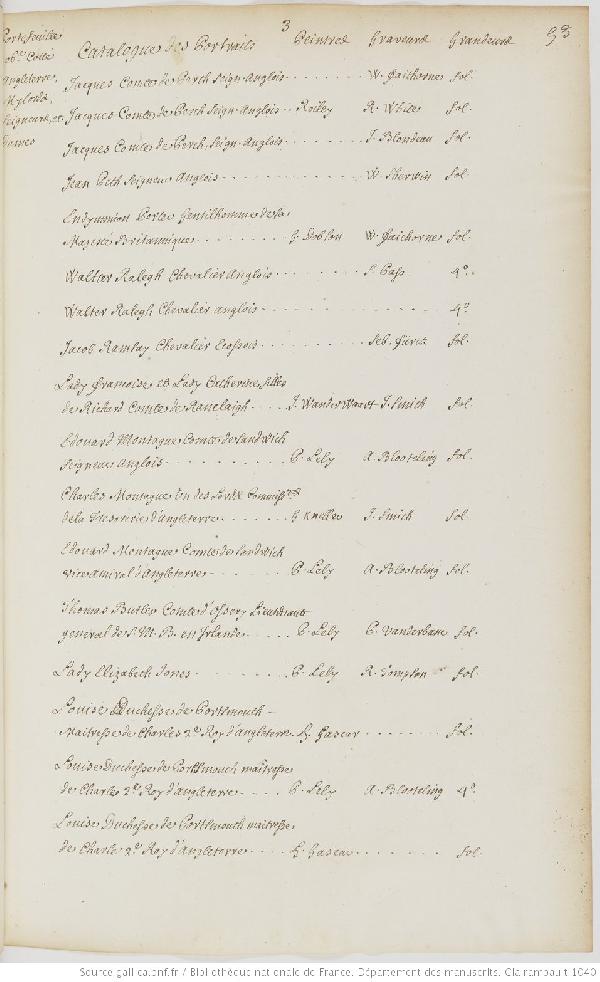 3
93
Portefeuille
Catalogue des Portraits Peintres Graveurs Grandeurs
Angleterre,
Mylords,
Seigneurs, et
Dames
Jacques Comte de Perth Seign. Anglois W. Faithorne fol.
Jacques Comte de Perth Seign. Anglois Reiley R. White fol.
Jacques Comte de Perth Seign. Anglois J. Blondeau fol.
Jean Pith Seigneur Anglois W. Sherwin fol.
Endymion Porter Gentilhomme de sa
Majesté Britannique G. Dobson W. Faithorne fol.
Walter Ralegh Chevalier Anglois S. Pass 4º.
Walter Ralegh Chevalier anglois 4º.
Jacob Ramsay Chevalier Ecossois fol.
Lady Françoise et Lady Catherine filles
de Richard Comte de Ranelaigh J. Vander Waart J. Smith fol.
Edouard Montague Comte de Sandwich
Seigneur Anglois P. Lely A. Blooteling fol.
Charles Montague un des Lords Commiss.res
de la Tresorerie d'angleterre G. Kneller J. Smith fol.
Edouard Montague Comte de Sandwich
vice amiral d'Angleterre P. Lely A. Blooteling fol.
Thomas Butler Comte d'ossery Lieutenant
general de S. M. B. en Irlande P. Lely P. Vanderbanc fol.
Lady Elizabeth Jones P. Lely R. Tompson fol.
Louise Duchesse de Portsmouth
Maitresse de Charles 2e Roy d'angleterre H. Gascar fol.
Louise Duchesse de Portsmouth maitresse
de Charles 2d Roy d'angleterre P. Lely A. Blooteling 4º.
Louise Duchesse de Portsmouth maitresse
de Charle 2d Roy d'angleterre H. Gascar fol.
Source gallica.bnf.fr / Bibliothèque nationale de France. Département des manuscrits. Clairambault 1040